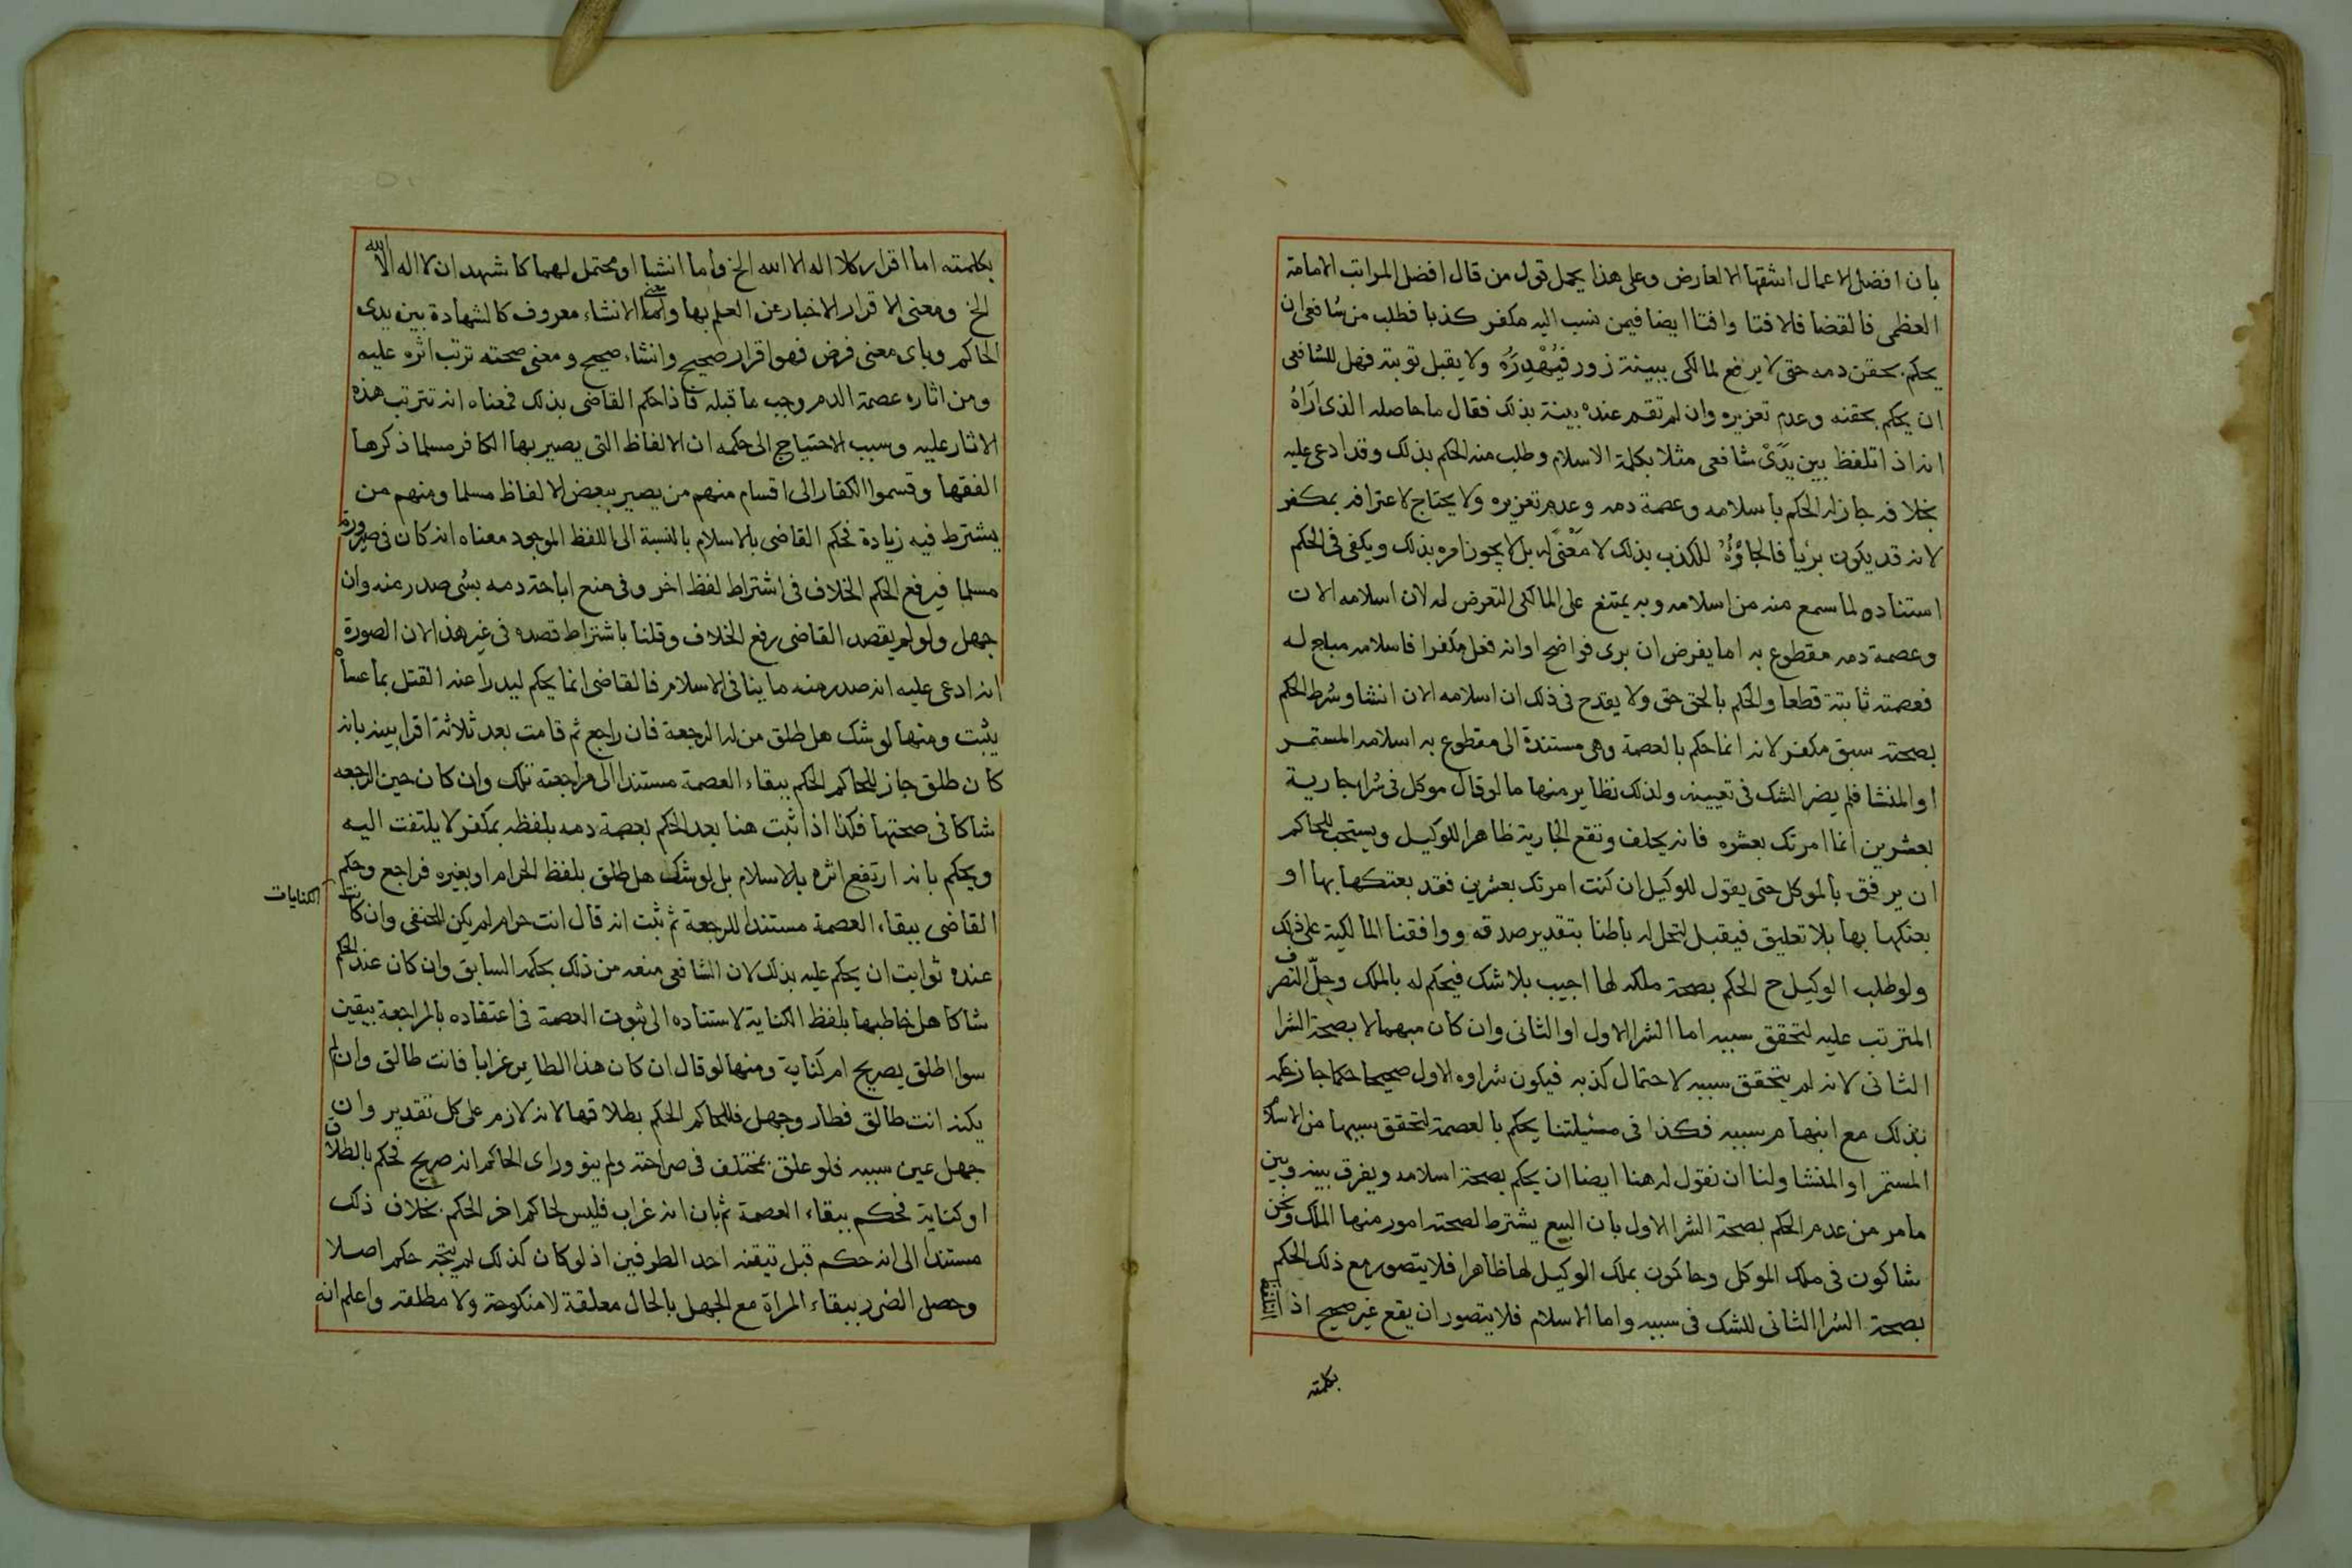 بأن افضل الاعمال اشقها الا لعارض وعلى هذا يحمل قول من قال افضل المراتب الامامة
العظمى فالقضا فالافتا وافتا ايضا فيمن نسب اليه مكفر كذبا فطلب من شافعى ان
يحكم بحقن دمه حتى لا يرفع لمالكى ببينة زور فيُهْدِرُه ولا يقبل توبته فهل للشافعى
ان يحكم بحقنه وعدم تعزيره وان لم تقم عنده بينة بذلك فقال ما حاصله الذى اَراهُ
انه اذا تلفظ بين يَدَىْ شافعى مثلا بكلمة الاسلام وطلب منه الحكم بذلك وقد ادعى عليه
بخلافه جاز له الحكم بأسلامه وعصمة دمه وعدم تعزيره ولا يحتاج لاعترافه بمكفر
لانه قد يكون بريأ فالجاؤُهُ للكذب بذلك لا مَعْنًى له بل لا يجوز امره بذلك ويكفى فى الحكم
استناده لما سمع منه من اسلامه وبه يمتنع على المالكى التعرض له لان اسلامه الان
وعصمة دمه مقطوع به اما بفرض ان برى فواضح اوانه فعل مكفرا فاسلامه مباح له
فعصمته ثابتة قطعا والحكم بالحق حق ولا يقدح فى ذلك ان اسلامه الان انشا وشرط الحكم
بصحته سبق مكفر لانه انما حكم بالعصمة وهى مستندة الى مقطوع به اسلامه المستمر
او المنشا فلم يضر الشك فى تعيينه ولذلك نظاير منها ما لو قال موكل فى شراء جارية
بعشرين انما امرتك بعشره فانه يحلف وتقع الجارية ظاهرا للوكيل ويستحب للحاكم
ان يرفق بالموكل حتى يقول للوكيل ان كنت امرتك بعشرين فقد بعتكها بها او
بعتكها بها بلا تعليق فيقبل لتحل له باطنا بتقدير صدقه ووافقنا المالكية على ذلك
ولو طلب الوكيل ح الحكم بصحة ملكه لها اجيب بلا شك فيحكم له بالملك وحِلّ التصرف
المترتب عليه لتحقق سببه اما الشرا الاول او الثانى وان كان مبهما لا بصحة الشرا
الثانى لانه لم يتحقق سببه لاحتمال كذبه فيكون شراوه الاول صحيحا فكما جاز حكمه
بذلك مع ابهام سببه فكذا فى مسئيلتنا يحكم بالعصمة لتحقق سببها من الاسلام
المستمر او المنشا ولنا ان نقول له هنا ايضا ان يحكم بصحة اسلامه ويفرق بينه وبين
ما مر من عدم الحكم بصحة الشرا الاول بان البيع يشترط لصحته امور منها الملك ونحن
شاكون فى ملك الموكل وحاكمون بملك الوكيل لها ظاهرا فلا يتصور مع ذلك الحكم
بصحة الشرا الثانى للشك فى سببه واما الاسلام فلا يتصور ان يقع غير صحيح اذ
بكلمته
بكلمته اما اقرار كلا اله الا الله الخ واما انشا او محتمل لهما كاشهد ان لا اله الا الله
الخ ومعنى الاقرار الاخبار عن العلم بها واما معنى الانشاء معروف كالشهادة بين يدى
الحاكم وباى معنى فرض فهو اقرار صحيح وانشاء صحيح ومعنى صحته ترتب اثره عليه
ومن اثاره عصمة الدم وجب ما قبله فاذا حكم القاضى بذلك فمعناه انه تترتب هذه
الاثار عليه وسبب الاحتياج الى حكمه ان الالفاظ التى يصير بها الكافر مسلما ذكرها
الفقها وقسموا الكفار الى اقسام منهم من يصير ببعض الالفاظ مسلما ومنهم من
يشترط فيه زيادة فحكم القاضى بالاسلام بالنسبة الى اللفظ الموجود معناه انه كان فى صيرورة
مسلما فيرفع الحكم الخلاف فى اشتراط لفظ اخر وفى منع اباحة دمه بشى صدر منه وان
جهل ولو لم يقصد القاضى رفع الخلاف وقلنا باشتراط قصده فى غير هذا لان الصورة
انه ادعى عليه انه صدر منه ما ينافى الاسلام فالقاضى انما يحكم ليدرا عنه القتل بما عساه
يثبت ومنها لو شك هل طلق من له الرجعة فان راجع ثم قامت بعد ثلاثة اقرا بينه بانه
كان طلق جاز للحاكم الحكم ببقاء العصمة مستندا الى مراجعته تلك وان كان حين الرجعه
شاكا فى صحتها فكذا اذا ثبت هنا بعد الحكم بعصمة دمه بلفظه بمكفر لا يلتفت اليه
ويحكم بانه ارتفع اثره بالاسلام بل لو شك هل طلق بلفظ الحرام او بغيره فراجع وحكم
القاضى ببقاء العصمة مستندا للرجعة ثم ثبت انه قال انت حرام لم يكن للحنفى وان كانت
الكنايات
عنده ثوابت ان يحكم عليه بذلك لان الشافعى منعه من ذلك بحكمه السابق وان كان عند الحكم
شاكا هل خاطبها بلفظ الكناية لاستناده الى ثبوت العصمة فى اعتقاده بالمراجعة بيقين
سوا اطلق بصريح ام كناية ومنها لو قال ان كان هذا الطاير غرابا فانت طالق وان لم
يكنه انت طالق فطار وجهل فللحاكم الحكم بطلاقها لانه لازم على كل تقدير وان
جهل عين سببه فلو علق بمختلف فى صراحته ولم ينو وراى الحاكم انه صريح فحكم بالطلاق
او كناية فحكم ببقاء العصمة ثم بان انه غراب فليس لحاكم اخر الحكم بخلاف ذلك
مستندا الى انه حكم قبل تيقنه احد الطرفين اذ لو كان كذلك لم يتجه حكم اصلا
وحصل الضرر ببقاء المراة مع الجهل بالحال معلقة لا منكوحة ولا مطلقه واعلم انه